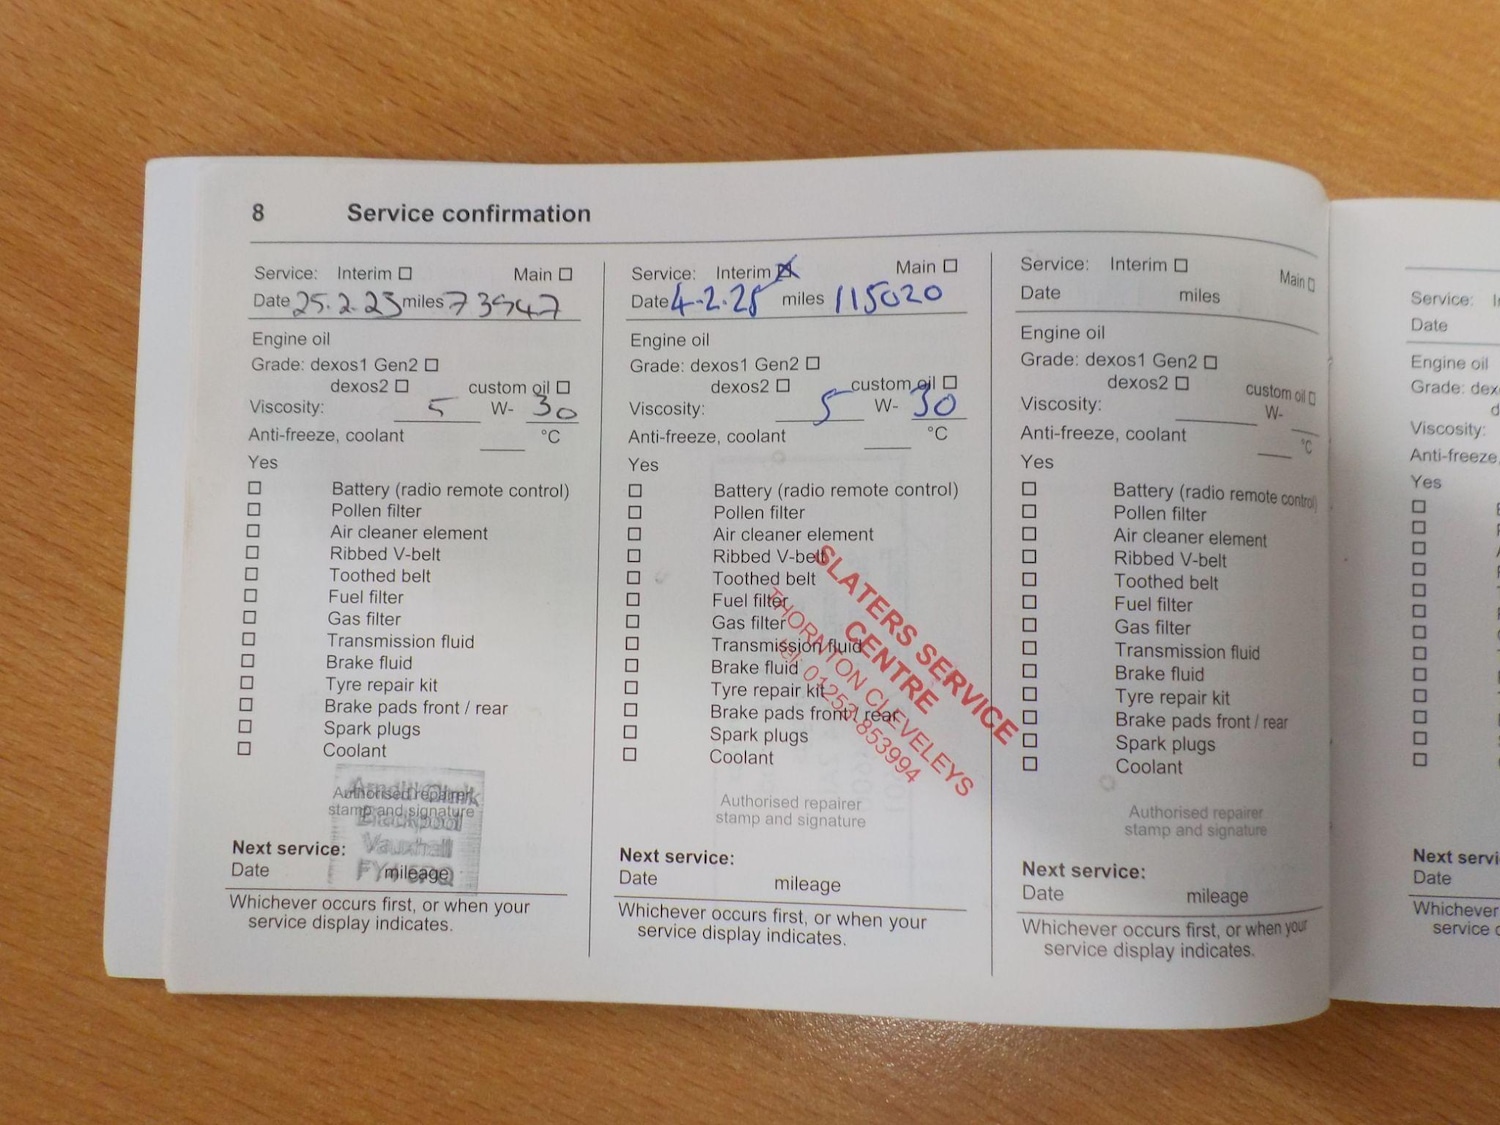 8 Service confirmation
Service: Interim Main
Date 25.2.23 miles 73947
Engine oil
Grade: dexos1 Gen2
dexos2 custom oil
Viscosity: 5 W- 30
Anti-freeze, coolant °C
Yes
Battery (radio remote control)
Pollen filter
Air cleaner element
Ribbed V-belt
Toothed belt
Fuel filter
Gas filter
Transmission fluid
Brake fluid
Tyre repair kit
Brake pads front / rear
Spark plugs
Coolant
Authorised repairer
stamp and signature
Arnold Clark
Blackpool
Vauxhall
Next service:
Date mileage
Whichever occurs first, or when your
service display indicates.
Service: Interim Main
Date 4-2.25 miles 115020
Engine oil
Grade: dexos1 Gen2
dexos2 custom oil
Viscosity: 5 W- 30
Anti-freeze, coolant °C
Yes
Battery (radio remote control)
Pollen filter
Air cleaner element
Ribbed V-belt
Toothed belt
Fuel filter
Gas filter
Transmission fluid
Brake fluid
Tyre repair kit
Brake pads front / rear
Spark plugs
Coolant
SLATERS SERVICE
CENTRE
THORNTON CLEVELEYS
Tel: 01253-853994
Authorised repairer
stamp and signature
Next service:
Date mileage
Whichever occurs first, or when your
service display indicates.
Service: Interim Main
Date miles
Engine oil
Grade: dexos1 Gen2
dexos2 custom oil
Viscosity: W-
Anti-freeze, coolant °C
Yes
Battery (radio remote control)
Pollen filter
Air cleaner element
Ribbed V-belt
Toothed belt
Fuel filter
Gas filter
Transmission fluid
Brake fluid
Tyre repair kit
Brake pads front / rear
Spark plugs
Coolant
Authorised repairer
stamp and signature
Next service:
Date mileage
Whichever occurs first, or when your
service display indicates.
Service:
Date
Engine oil
Grade:
Viscosity:
Anti-freeze,
Yes
Next
Date
Whichever
service